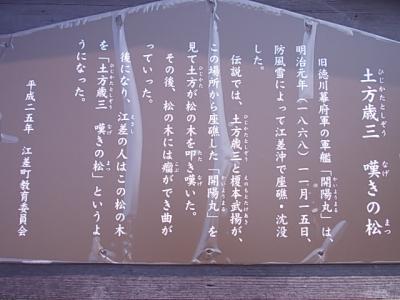 土方歳三　嘆きの松
旧徳川幕府軍の軍艦「開陽丸」は、
明治元年（一八六八）一一月一五日、
防風雪によって江差沖で座礁・沈没
した。
伝説では、土方歳三と榎本武揚が、
この場所から座礁した「開陽丸」を
見て土方が松の木を叩き嘆いた。
その後、松の木には瘤ができ曲が
っていった。
後になり、江差の人はこの松の木
を「土方歳三　嘆きの松」というよ
うになった。
平成二五年　江差町教育委員会